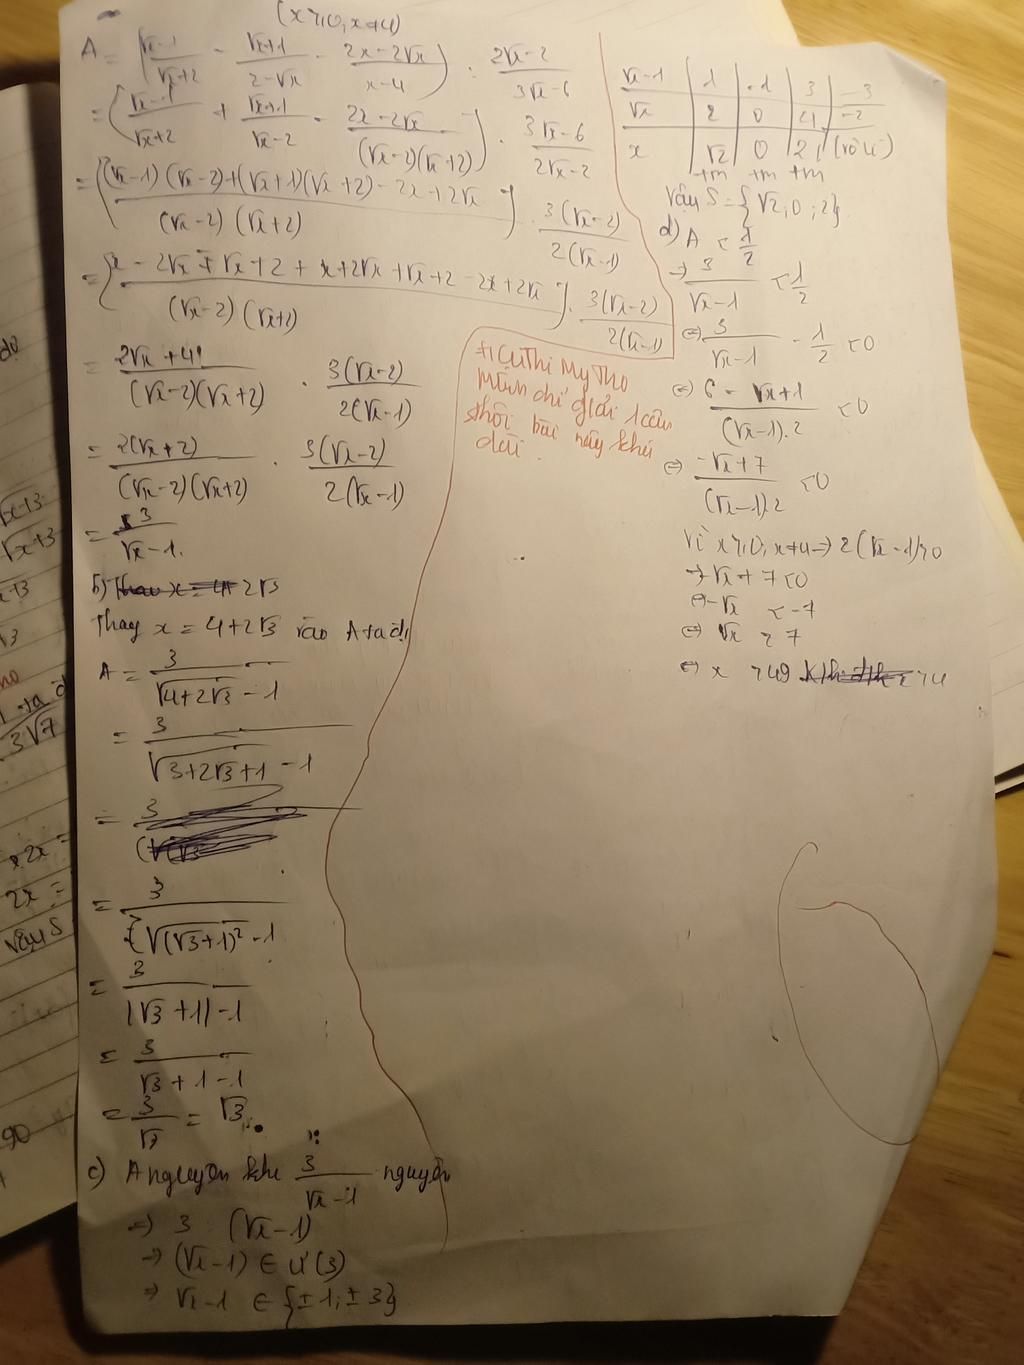 (x≥0, x≠4)
A = (√x-1/√x+2 - √x+1/2-√x - 2x-2√x/x-4) : 2√x-2/3√x-6
= (√x-1/√x+2 + √x+1/√x-2 - 2x-2√x/(√x-2)(√x+2)) . 3√x-6/2√x-2
= [(√x-1)(√x-2)+(√x+1)(√x+2)-2x+2√x/(√x-2)(√x+2)] . 3(√x-2)/2(√x-1)
= [x-2√x-√x+2+x+2√x+√x+2-2x+2√x/(√x-2)(√x+2)] . 3(√x-2)/2(√x-1)
= 2√x+4/(√x-2)(√x+2) . 3(√x-2)/2(√x-1)
= 2(√x+2)/(√x-2)(√x+2) . 3(√x-2)/2(√x-1)
= 3/√x-1.
b) Thay x = 4+ 2√3
Thay x = 4+2√3 vào A ta đ
A = 3/√4+2√3 -1
= 3/√3+2√3+1 -1
= 3/√(√3+1)² -1
= 3/|√3+1| -1
= 3/√3+1-1
= 3/√3 = √3.
c) A nguyên khi 3/√x-1 nguyên
=> 3 (√x-1)
=> (√x-1) ∈ Ư(3)
=> √x-1 ∈ {±1; ±3}
√x-1 | 1 | -1 | 3 | -3
√x | 2 | 0 | 4 | -2
x | √2 | 0 | 2 | (vô lí)
+m +m +m
Vậy S = {√2; 0; 2}
d) A < 1/2
=> 3/√x-1 < 1/2
<=> 3/√x-1 - 1/2 <0
<=> 6-√x+1/(√x-1).2 <0
<=> -√x+7/(√x-1).2 <0
Vì x≥0, x≠4 => 2(√x-1)>0
=> -√x+7<0
<=> -√x < -7
<=> √x > 7
<=> x >49
Thi Mỹ Tho
Mình chỉ giải 1 câu
thôi bài này khá
dài.
√x+3
√x+3
ta đ
3√7
2x =
2x =
Vậy S
90